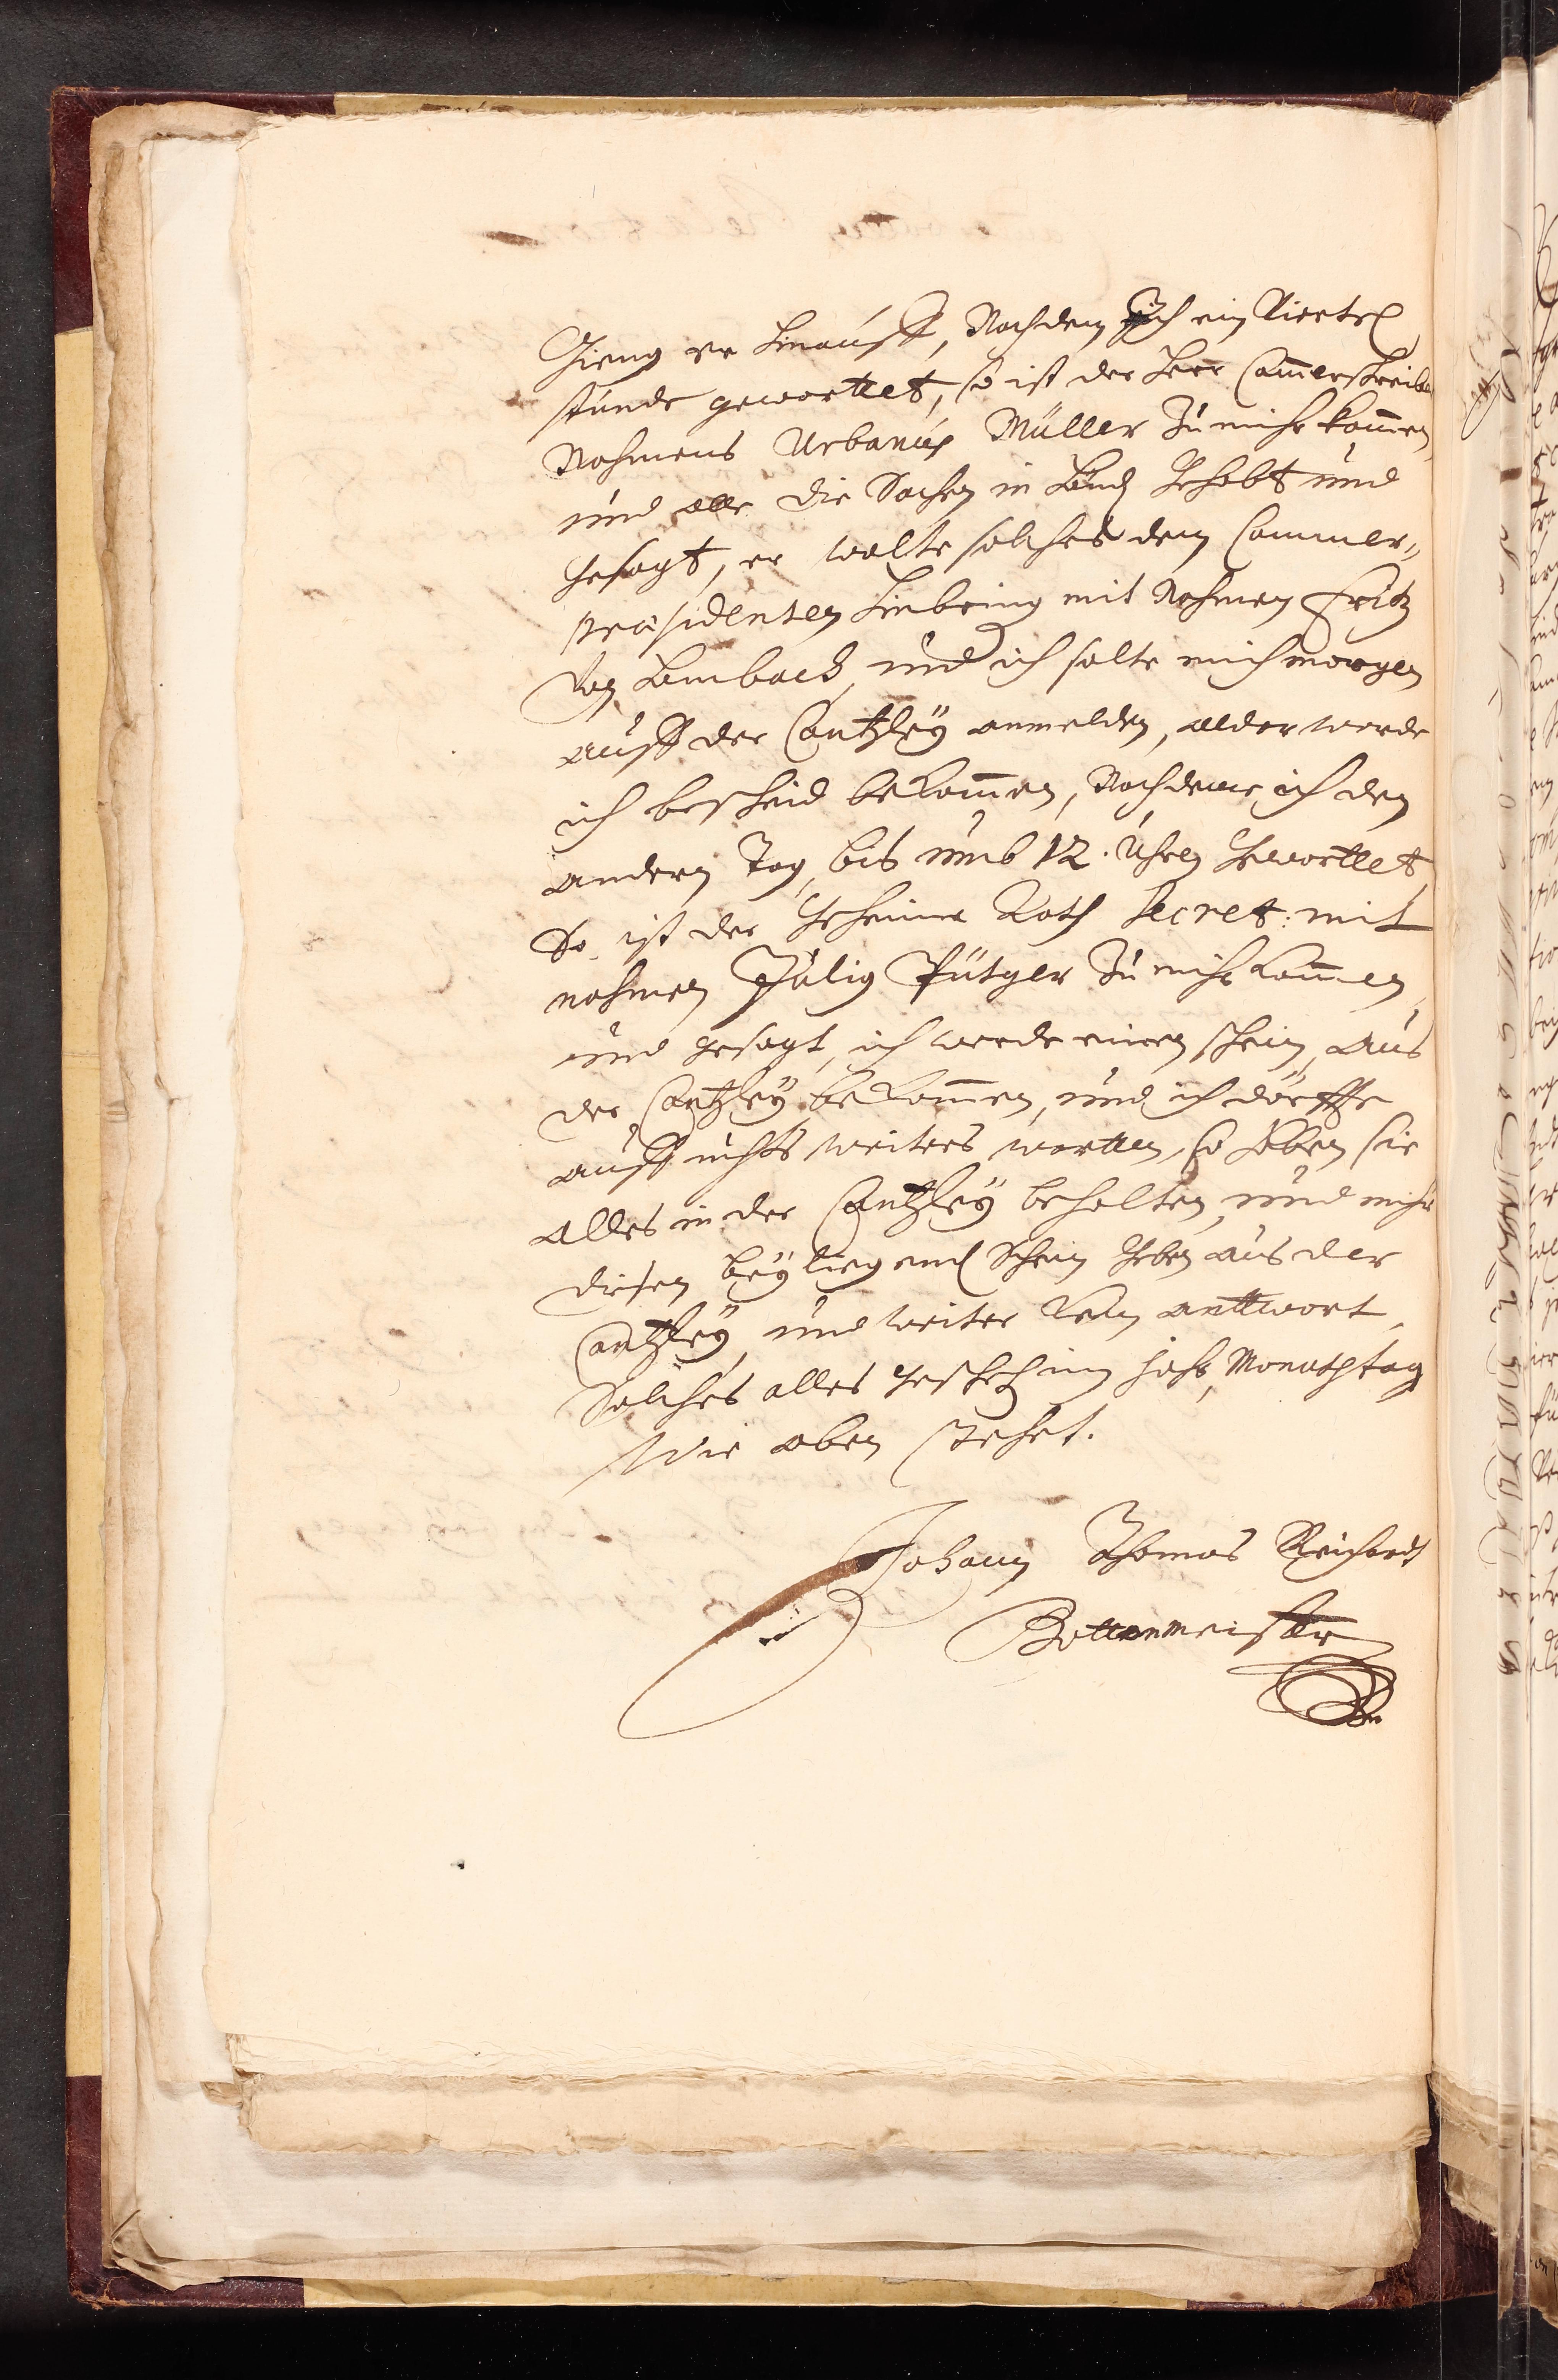 Gieng er hinauff, Nachdem ich ein Viertel
stunde gewarttet, so ist der Herr Cam̄erschreiber
Nahmens Urbanus Müller zu mihr kom̄en,
und alle die Sachen in Händ gehabt und
gesagt, er wolte solches dem Cammer„
præsidenten hinbring mit Nahmen Fritz
von Limbach, und ich solte mich morgen
auff der Cantzleÿ anmelden, aldar werde
ich bescheid bekom̄en, Nachdeme ich den
andern Tag, bis umb 12. Uhren gewarttet,
So ist der geheime Rath Secret: mit
nahmen Julig Pütger zu mihr kom̄en,
und gesagt, ich werde einen schein, aus
der Cantzleÿ bekom̄en, und ich dörffte
auff nichts weiters wartten, so haben sie
alles in der Cantzleÿ behalten, und mihr
diesen beÿliegend Schein geben aus der
Cantzleÿ, und weiter kein anttwort,
Solches alles gescheh im Jahr, Monathstag
Wie oben stehet.
Johann Thomas Reichardt
Bottenmeister